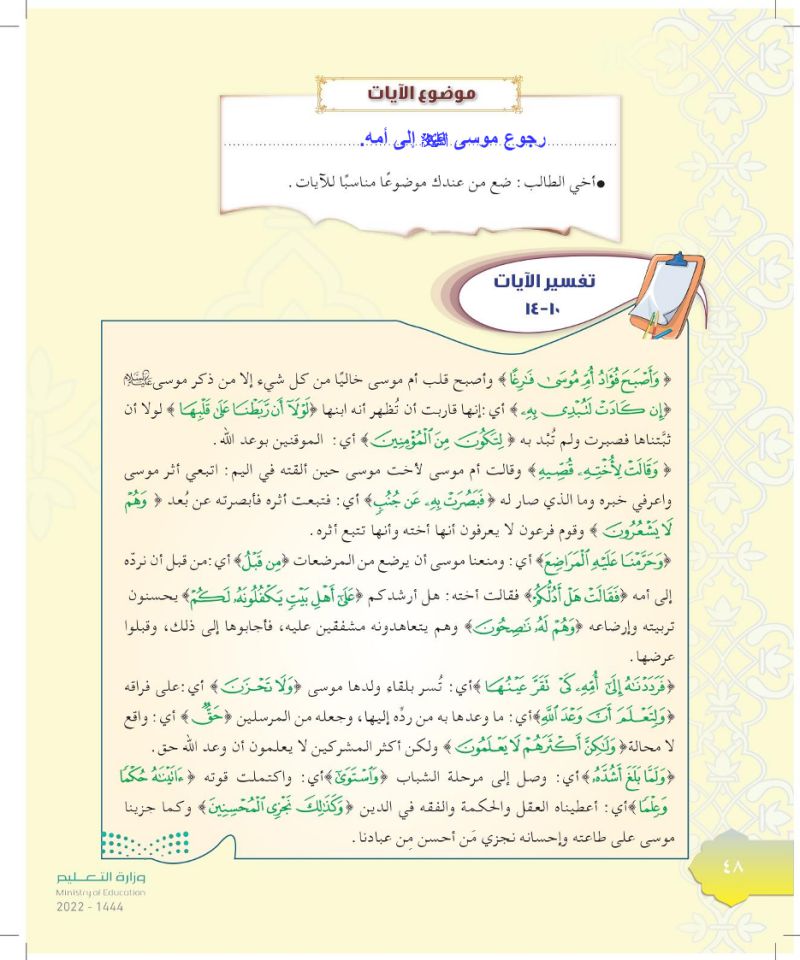 موضوع الآيات
رجوع موسى ﵇ إلى أمه.
● أخي الطالب : ضع من عندك موضوعًا مناسبًا للآيات .
تفسير الآيات
١٠-١٤
﴿ وَأَصْبَحَ فُؤَادُ أُمِّ مُوسَىٰ فَارِغًا ﴾ وأصبح قلب أم موسى خاليًا من كل شيء إلا من ذكر موسى ﵇
﴿إِن كَادَتْ لَتُبْدِي بِهِۦ﴾ أي :إنها قاربت أن تُظهر أنه ابنها ﴿لَوْلَآ أَن رَّبَطْنَا عَلَىٰ قَلْبِهَا ﴾ لولا أن
ثبَّتناها فصبرت ولم تُبْد به ﴿ لِتَكُونَ مِنَ الْمُؤْمِنِينَ ﴾ أي : الموقنين بوعد الله .
﴿ وَقَالَتْ لِأُخْتِهِۦ قُصِّيهِ ﴾ وقالت أم موسى لأخت موسى حين ألقته في اليم : اتبعي أثر موسى
واعرفي خبره وما الذي صار له ﴿فَبَصُرَتْ بِهِۦ عَن جُنُبٍ﴾ أي : فتبعت أثره فأبصرته عن بُعد ﴿ وَهُمْ
لَا يَشْعُرُونَ ﴾ وقوم فرعون لا يعرفون أنها أخته وأنها تتبع أثره .
﴿وَحَرَّمْنَا عَلَيْهِ الْمَرَاضِعَ﴾ أي : ومنعنا موسى أن يرضع من المرضعات ﴿مِن قَبْلُ﴾ أي :من قبل أن نردّه
إلى أمه ﴿فَقَالَتْ هَلْ أَدُلُّكُمْ﴾ فقالت أخته : هل أرشدكم ﴿عَلَىٰٓ أَهْلِ بَيْتٍ يَكْفُلُونَهُۥ لَكُمْ﴾ يحسنون
تربيته وإرضاعه ﴿وَهُمْ لَهُۥ نَاصِحُونَ﴾ وهم يتعاهدونه مشفقين عليه، فأجابوها إلى ذلك، وقبلوا
عرضها .
﴿فَرَدَدْنَاهُ إِلَىٰٓ أُمِّهِۦ كَيْ تَقَرَّ عَيْنُهَا ﴾أي : تُسر بلقاء ولدها موسى ﴿وَلَا تَحْزَنَ ﴾ أي :على فراقه
﴿وَلِتَعْلَمَ أَنَّ وَعْدَ اللَّهِ﴾أي : ما وعدها به من ردِّه إليها، وجعله من المرسلين ﴿حَقٌّ ﴾ أي : واقع
لا محالة﴿ وَلَٰكِنَّ أَكْثَرَهُمْ لَا يَعْلَمُونَ ﴾ ولكن أكثر المشركين لا يعلمون أن وعد الله حق .
﴿وَلَمَّا بَلَغَ أَشُدَّهُۥ ﴾أي : وصل إلى مرحلة الشباب ﴿وَاسْتَوَىٰٓ﴾أي : واكتملت قوته ﴿ ءَاتَيْنَٰهُ حُكْمًا
وَعِلْمًا﴾أي : أعطيناه العقل والحكمة والفقه في الدين ﴿وَكَذَٰلِكَ نَجْزِي الْمُحْسِنِينَ﴾ وكما جزينا
موسى على طاعته وإحسانه نجزي مَن أحسن مِن عبادنا .
٤٨
وزارة التعليم
Ministry of Education
2022 - 1444